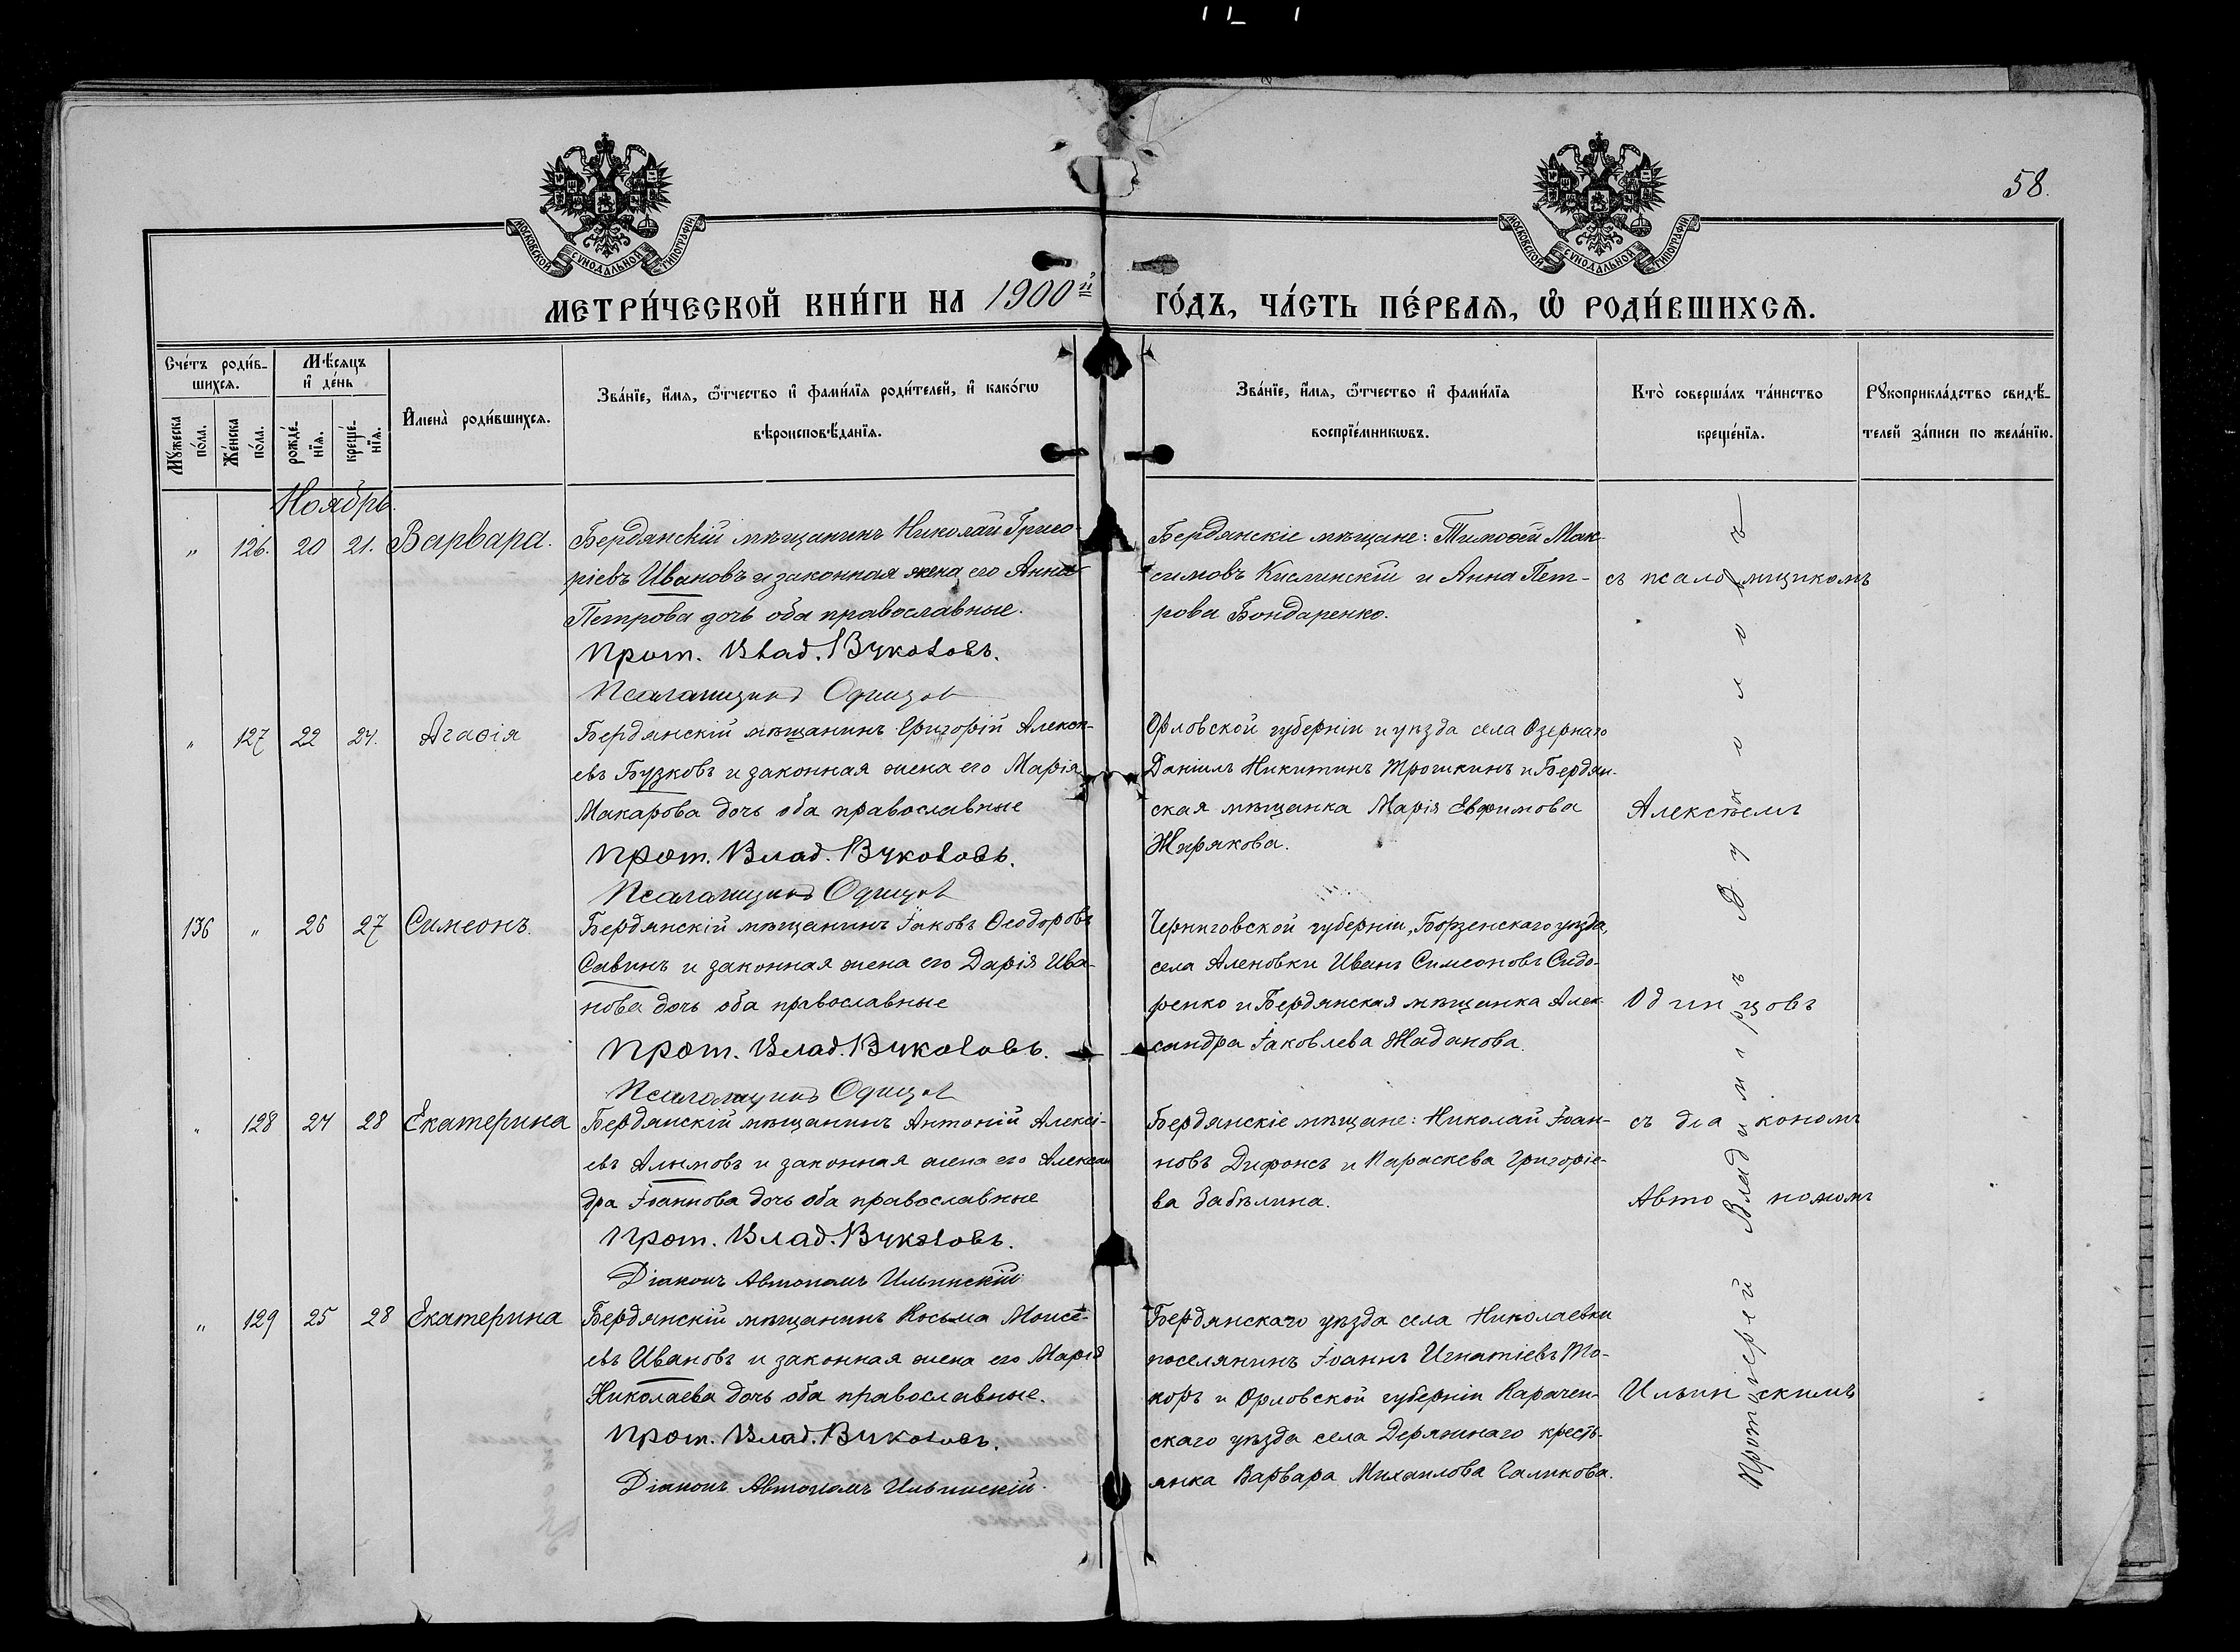 58.
МОСКОВСКОЙ СѴНОДАЛЬНОЙ ТИПОГРАФІИ
МОСКОВСКОЙ СѴНОДАЛЬНОЙ ТИПОГРАФІИ
МЕТРИ́ЧЕСКОЙ КНИ́ГИ НА 1900й ГО́ДЪ, ЧА́СТЬ ПЕ́РВАѦ, Ѡ҆ РОДИ́ВШИХСѦ.
Сче́тъ роди́в-
шихсѧ.
Мꙋ́жеска
по́ла.
Же́нска
по́ла.
Мѣ́сѧцъ
и҆ де́нь
рожде́-
нїѧ.
креще́-
нїѧ.
И҆мена̀ роди́вшихсѧ.
Зва́нїе, и҆́мѧ, ѻ҆́тчество и҆ фами́лїѧ роди́телей, и҆ како́гѡ
вѣроисповѣ́данїѧ.
Зва́нїе, и҆́мѧ, ѻ҆́тчество и҆ фами́лїѧ
воспрїе́мникѡвъ.
Кто̀ соверша́лъ та́инство
креще́нїѧ.
Рꙋкоприкла́дство свидѣ́-
телей за́писи по жела́нїю.
Ноябрь.
" 126. 20 21. Варвара.
Бердянскій мѣщанинъ Николай Григо-
ріевъ Ивановъ и законная жена его Анна
Петрова дочь оба православные.
Прот. Влад. Вуколовъ.
Псаломщикъ Одинцов
Бердянскіе мѣщане: Тимоѳей Мак-
симовъ Кислинскій и Анна Пет-
рова Бондаренко.
" 127 22 24. Агаѳія
Бердянскій мѣщанинъ Григорій Алексѣ-
евъ Бузковъ и законная жена его Марія
Макарова дочь оба православные
Прот. Влад. Вуколовъ.
Псаломщикъ Одинцов
Орловской губерніи и уѣзда села Озернаго
Даніилъ Никитинъ Трошкинъ и Бердян-
ская мѣщанка Марія Евфимова
Жирякова.
136 " 26 27 Симеонъ.
Бердянскій мѣщанинъ Іаковъ Ѳеодоровъ
Савинъ и законная жена его Дарія Ива-
нова дочь оба православные
Прот. Влад. Вуколовъ.
Псаломщикъ Одинцов
Черниговской губерніи, Борзенскаго уѣзда,
села Аленовки Иванъ Симеоновъ Сидо-
ренко и Бердянская мѣщанка Алек-
сандра Іаковлева Жаданова.
" 128 24 28 Екатерина
Бердянскій мѣщанинъ Антоній Алексі-
евъ Алымовъ и законная жена его Алексан
дра Іоаннова дочь оба православные
Прот. Влад. Вуколовъ.
Діаконъ Автономъ Ильинскій
Бердянскіе мѣщане: Николай Іоан-
новъ Дифонсъ и Параскева Григоріе-
ва Забѣлина.
" 129 25 28 Екатерина
Бердянскій мѣщанинъ Косьма Моисе-
евъ Ивановъ и законная жена его Марія
Николаева дочь оба православные.
Прот. Влад. Вуколовъ.
Діаконъ Автономъ Ильинскій.
Бердянскаго уѣзда села Николаевки
поселянинъ Іоаннъ Игнатіевъ То-
коръ и Орловской губерніи Карачев-
скаго уѣзда села Дерянинаго кресть-
янка Варвара Михаилова Галикова.
Протоіерей Владиміръ Вуколовъ
съ псаломщикомъ
Алексѣемъ
Одинцовъ
съ діакономъ
Автономомъ
Ильинскимъ